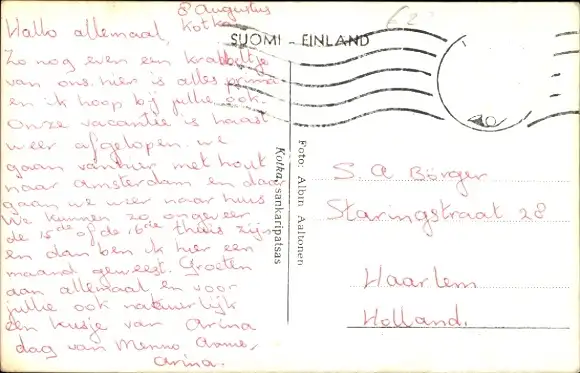 8 augustus
Kotka
Hallo allemaal,
Zo nog even een krabbeltje
van ons. hier is alles prima
en ik hoop bij jullie ook.
Onze vacantie is haast
weer afgelopen. we
gaan vanhier met hout
naar amsterdam en dan
gaan we weer naar huis
We kunnen zo ongeveer
de 15de of de 16de thuis zijn
en dan ben ik hier een
maand geweest. Groeten
aan allemaal en voor
jullie ook natuurlijk
een kusje van Arina
dag van Menno
Arina.
SUOMI - FINLAND
Foto: Albin Aaltonen
Kotka, sankaripatsas
S. a Börger
Staringstraat 28
Haarlem
Holland.